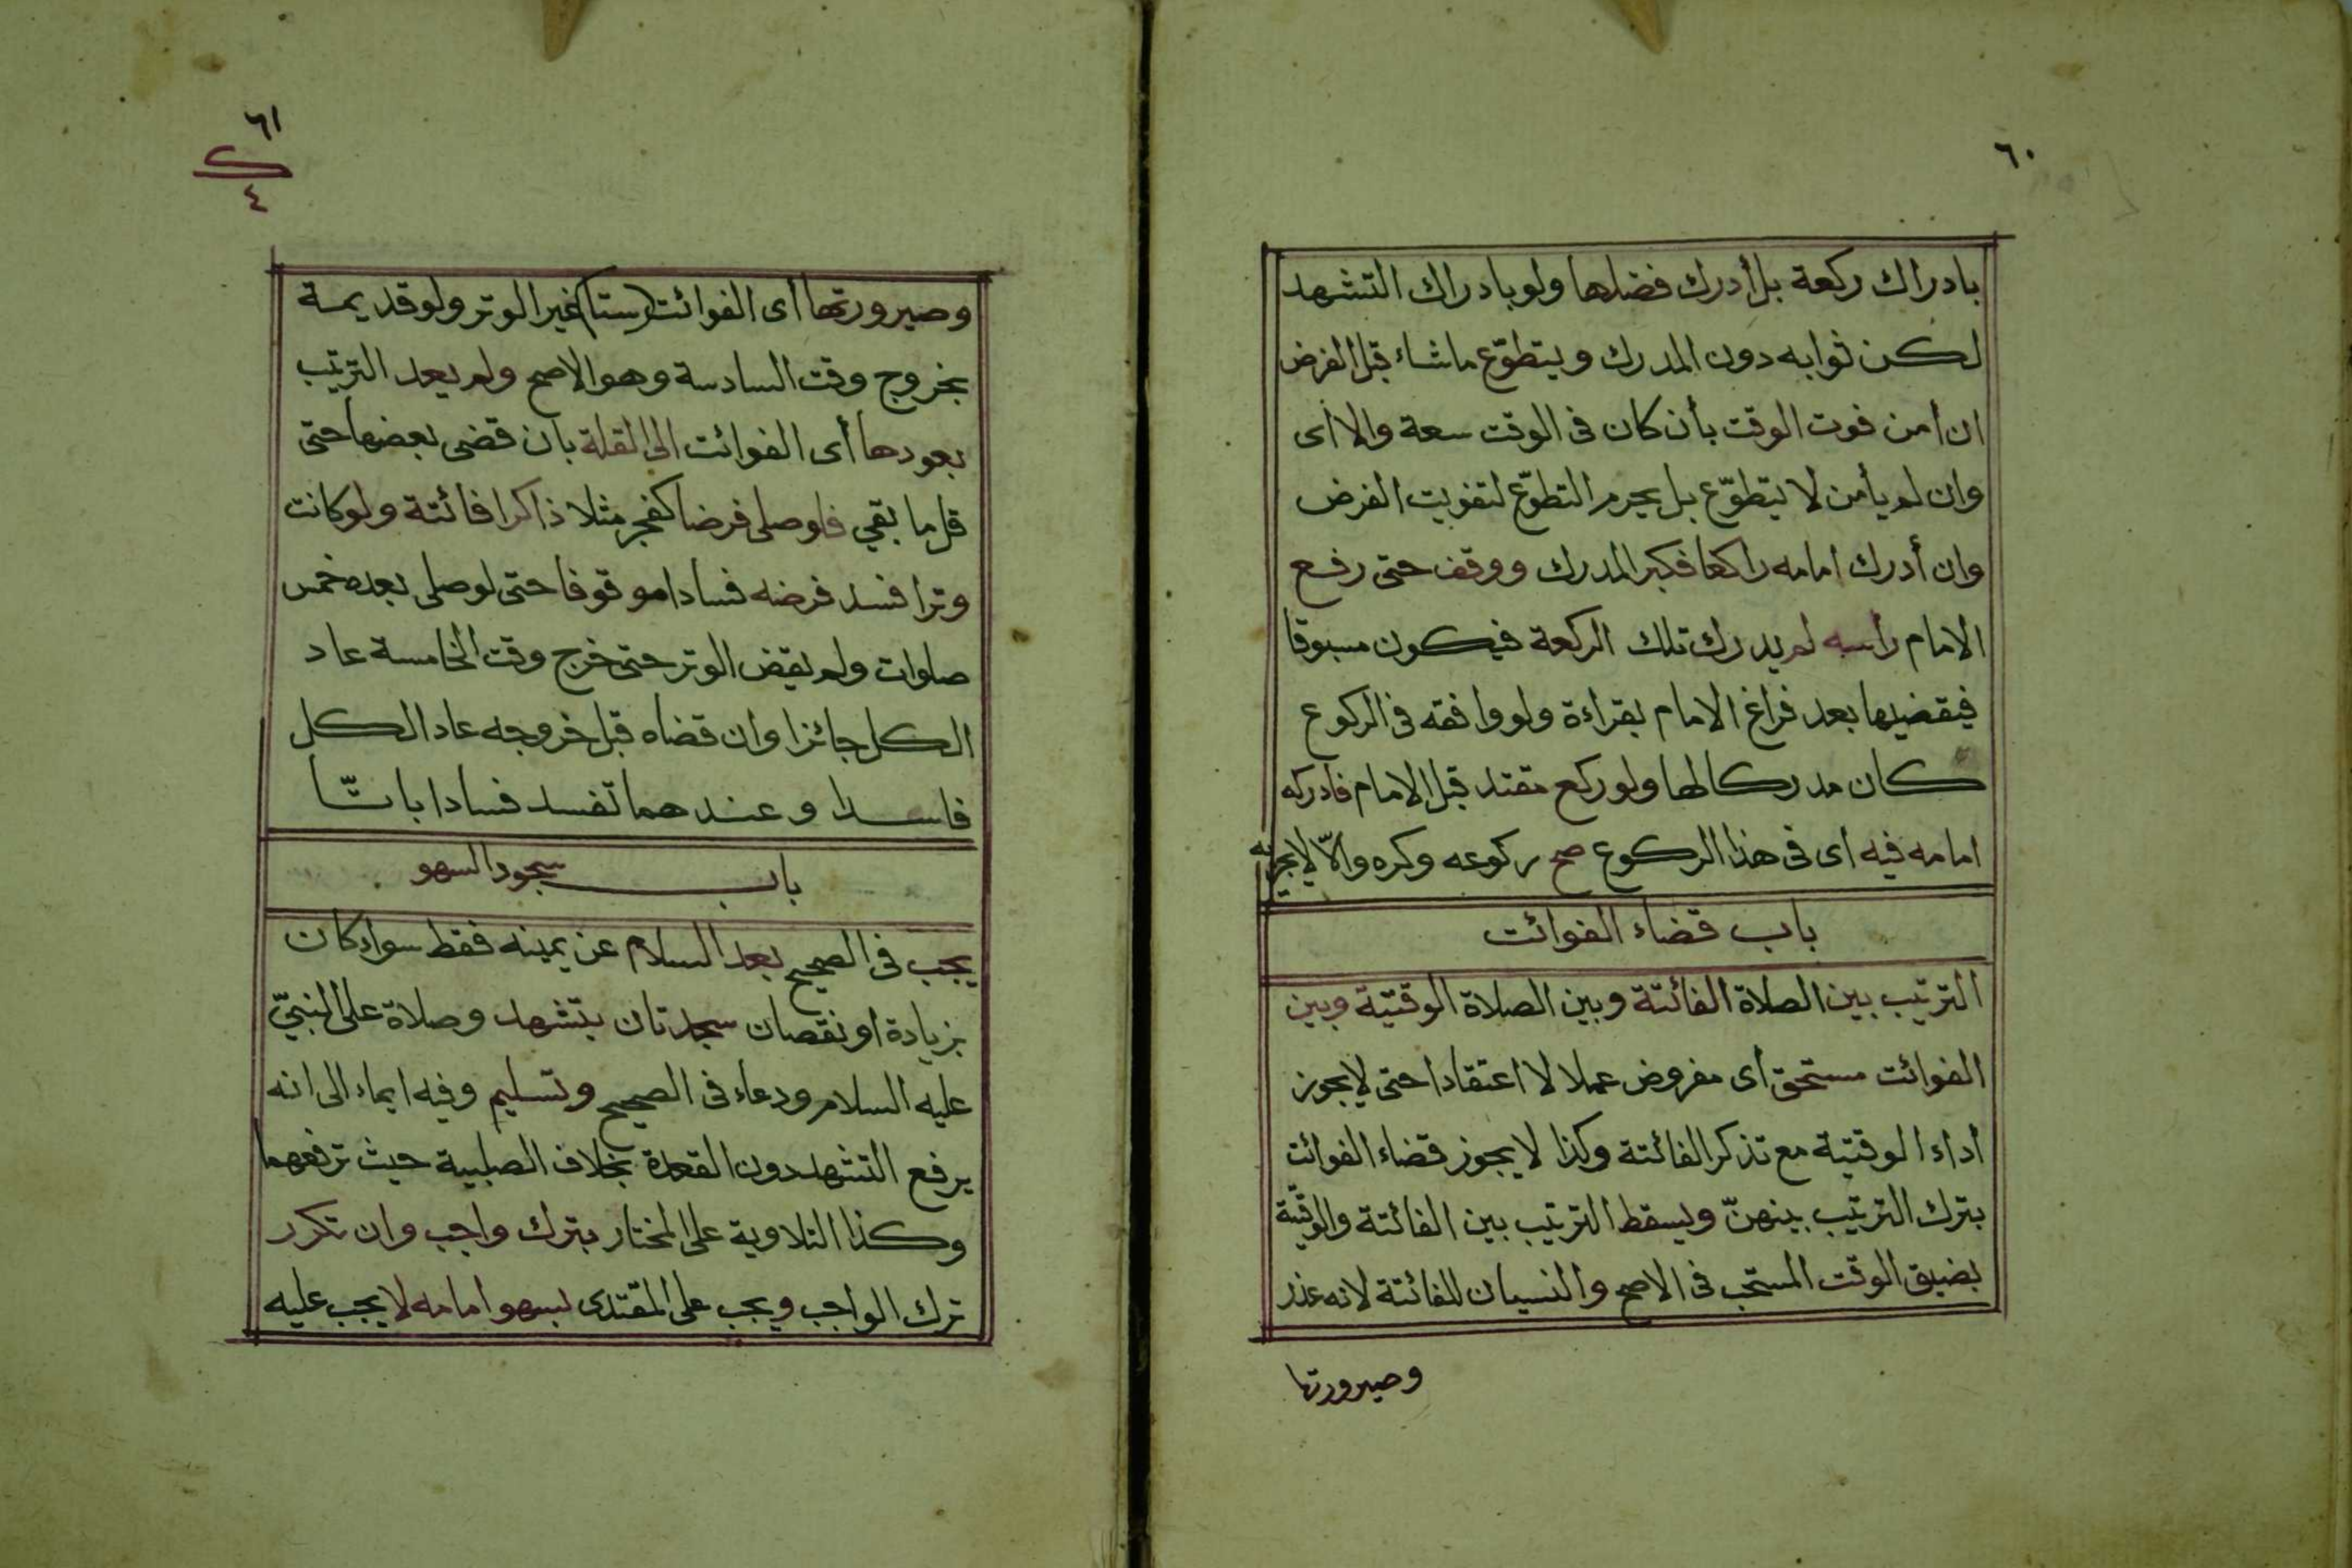 ٦٠
بادراك ركعة بل أدرك فضلها ولو بادراك التشهد
لكن ثوابه دون المدرك ويتطوّع ماشاء قبل الفرض
ان أمن فوت الوقت بأن كان فى الوقت سعة والا أى
وان لم يأمن لا يتطوّع بل يحرم التطوّع لتفويت الفرض
وان أدرك امامه راكعا فكبر المدرك ووقف حتى رفع
الامام رأسه لم يدرك تلك الركعة فيكون مسبوقا
فيقضيها بعد فراغ الامام بقراءة ولو وافقه فى الركوع
كان مدركا لها ولو ركع مقتد قبل الامام فأدركه
امامه فيه أى فى هذا الركوع صح ركوعه وكره والّا لا يجزيه
باب قضاء الفوائت
الترتيب بين الصلاة الفائتة وبين الصلاة الوقتية وبين
الفوائت مستحق أى مفروض عملا لا اعتقادا حتى لا يجوز
أداء الوقتية مع تذكر الفائتة وكذا لا يجوز قضاء الفوائت
بترك الترتيب بينهنّ ويسقط الترتيب بين الفائتة والوقتية
بضيق الوقت المستحب فى الاصح والنسيان للفائتة لانه عذر
وصيرورتها
٦١
٤
وصيرورتها أى الفوائت (ستا) غير الوتر ولو قديمة
بخروج وقت السادسة وهو الاصح ولم يعد الترتيب
بعودها أى الفوائت الى القلة بان قضى بعضها حتى
قل ما بقي فلو صلى فرضا كفجر مثلا ذاكرا فائتة ولو كانت
وترا فسد فرضه فسادا موقوفا حتى لو صلى بعده خمس
صلوات ولم يقض الوتر حتى خرج وقت الخامسة عاد
الكل جائزا وان قضاه قبل خروجه عاد الكل
فاسدا وعندهما تفسد فسادا باتّا
باب سجود السهو
يجب فى الصحيح بعد السلام عن يمينه فقط سواء كان
بزيادة او نقصان سجدتان بتشهد وصلاة على النبيّ
عليه السلام ودعاء فى الصحيح وتسليم وفيه ايماء الى انه
يرفع التشهد دون القعدة بخلاف الصلبية حيث ترفعهما
وكذا التلاوية على المختار بترك واجب وان تكرر
ترك الواجب ويجب على المقتدى بسهو امامه لا يجب عليه